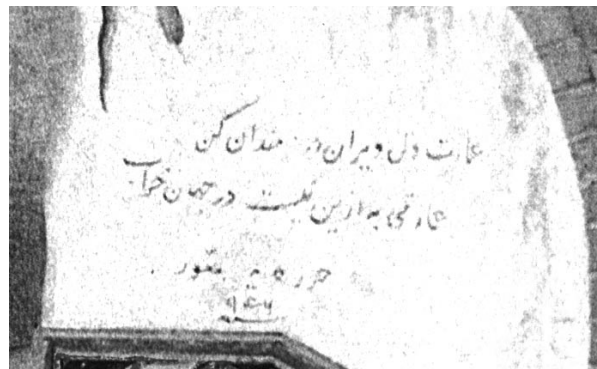 عمارت دل ویران دردمندان کن
عمارتی به ازین نیست در جهان خراب
حرره میر مصور
۹۴۶